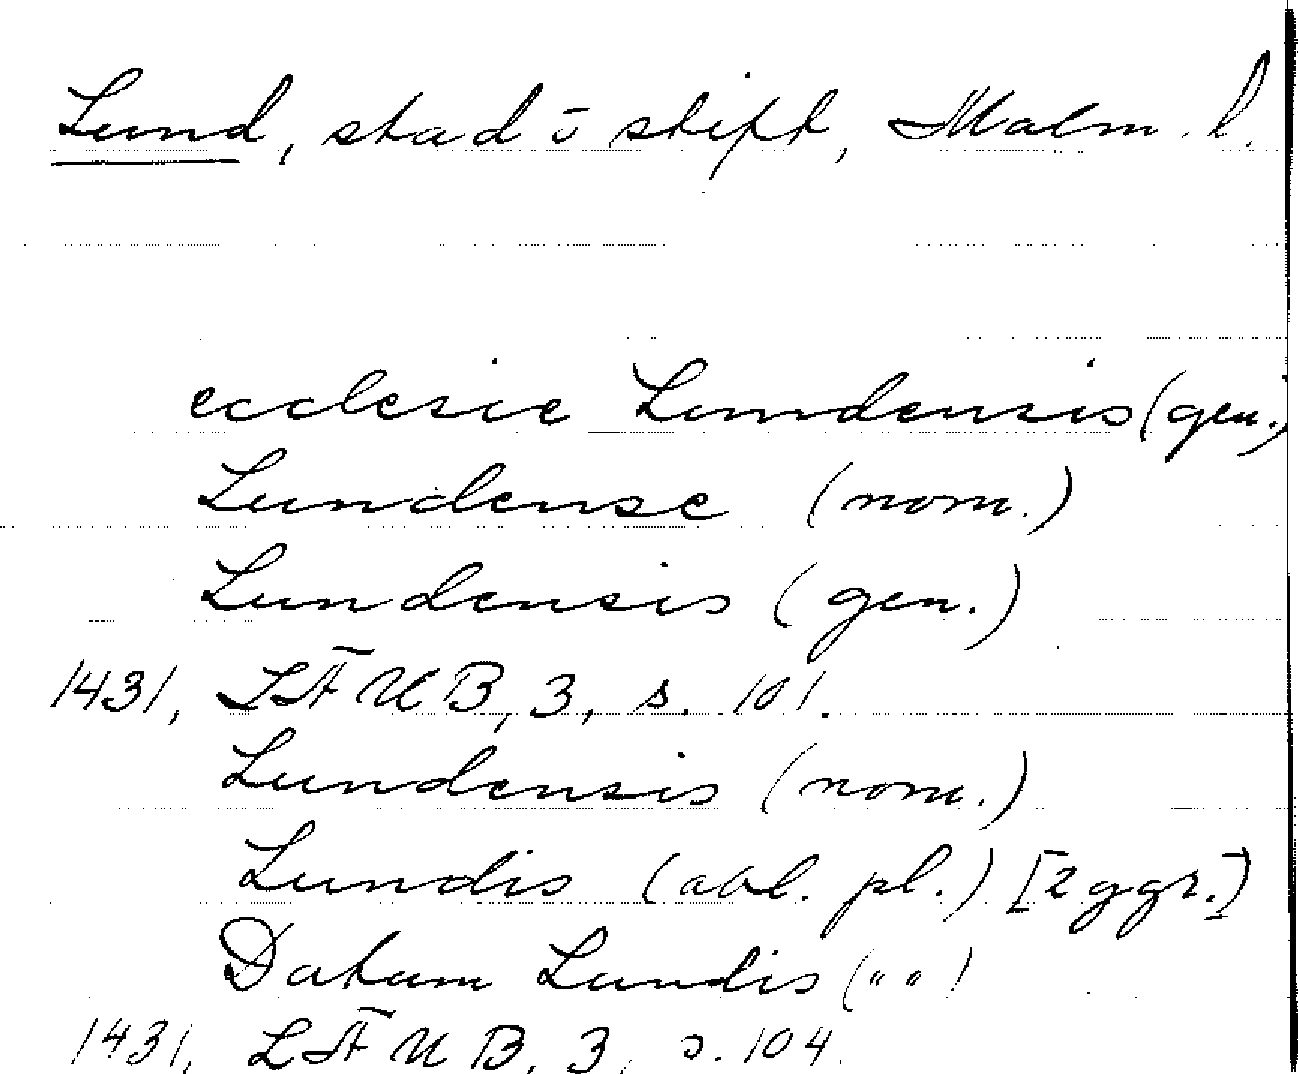 Lund, stad o skift, Malm. l.
ecclesie Lundensis (gen.)
Lundense (nom.)
Lundensis (gen.)
1431, LÄUB, 3, s. 101.
Lundensis (nom.)
Lundis (abl. pl.) [2 ggr.]
Datum Lundis (" ")
1431, LÄUB, 3, s. 104.